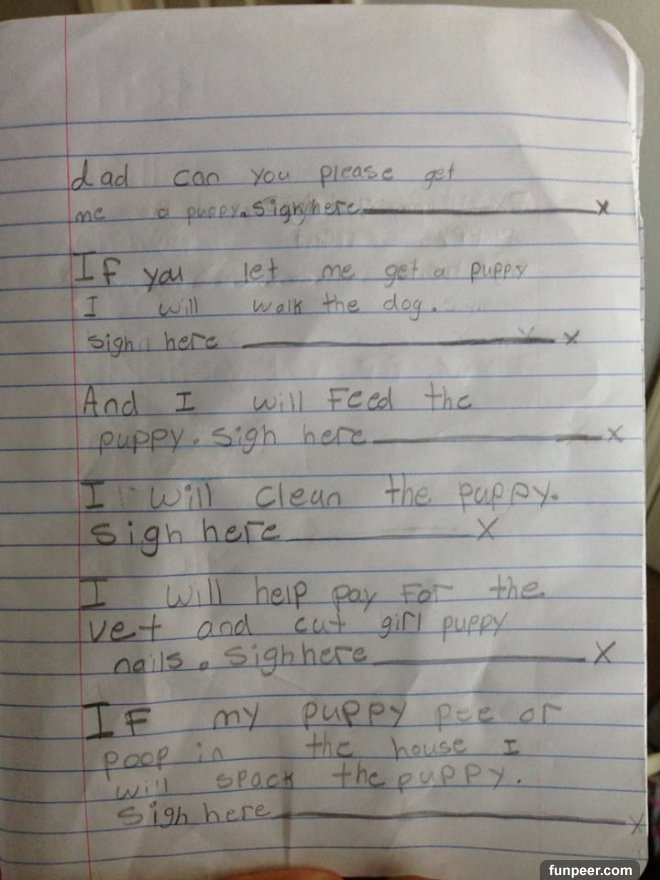 dad can you please get
me a puppy. sigh here x
If you let me get a puppy
I will walk the dog.
sigh here x
And I will Feed the
puppy. sigh here x
I will clean the puppy.
sigh here x
I will help pay For the
vet and cut girl puppy
nails. sigh here x
IF my puppy pee or
poop in the house I
will spack the puppy.
sigh here x
funpeer.com